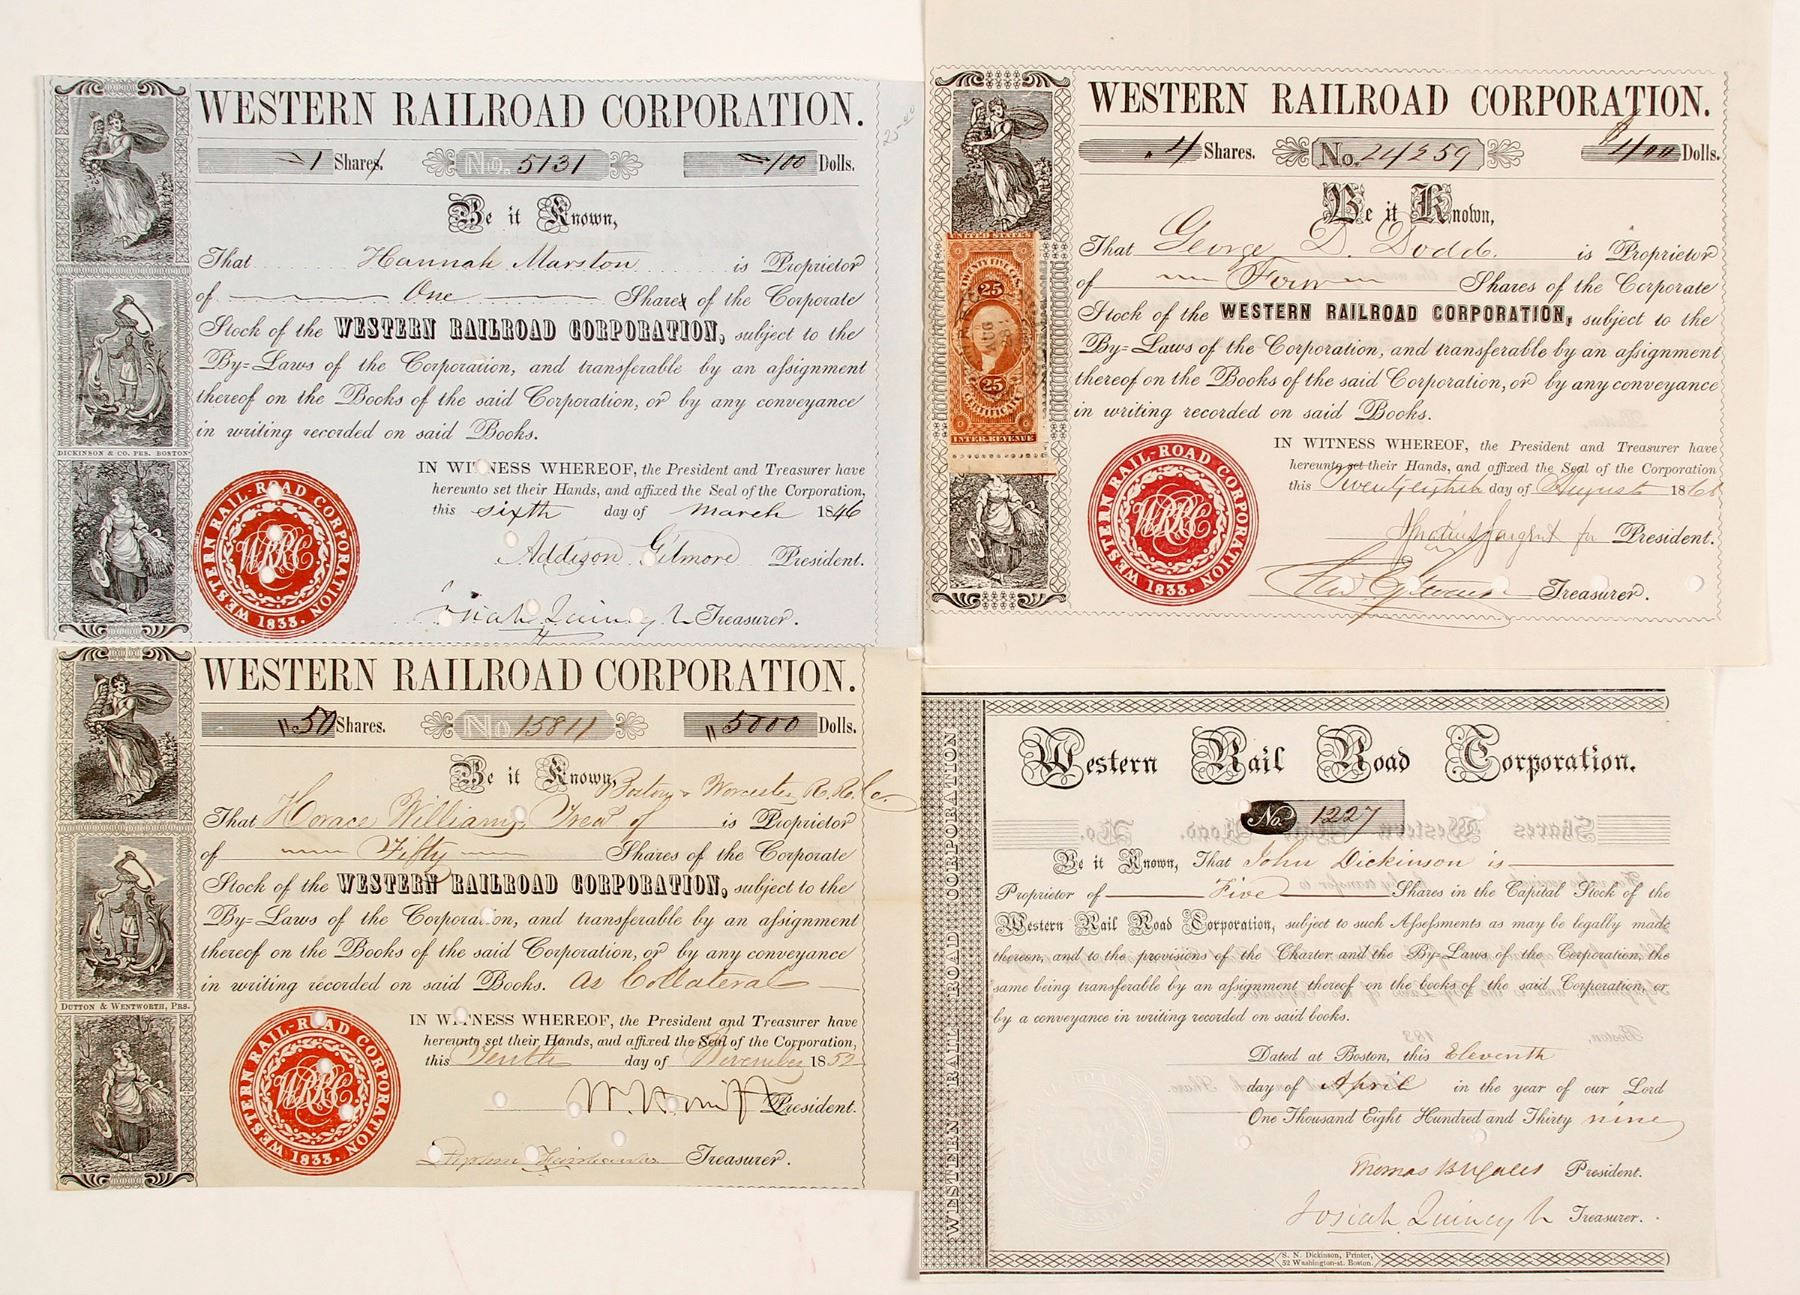 WESTERN RAILROAD CORPORATION.
1 Shares. No. 5131 100 Dolls.
25-00
Be it Known,
That Hannah Marston is Proprietor
of One Shares of the Corporate
Stock of the WESTERN RAILROAD CORPORATION, subject to the
By-Laws of the Corporation, and transferable by an assignment
thereof on the Books of the said Corporation, or by any conveyance
in writing recorded on said Books.
DICKINSON & CO. PRS. BOSTON
IN WITNESS WHEREOF, the President and Treasurer have
hereunto set their Hands, and affixed the Seal of the Corporation,
this sixth day of March 1846
Addison Gilmore President.
Josiah Quincy Jr Treasurer.
WESTERN RAIL-ROAD CORPORATION
WRRC
1833.
WESTERN RAILROAD CORPORATION.
4 Shares. No. 24259 $400 Dolls.
Be it Known,
That George D. Dodd is Proprietor
of Four Shares of the Corporate
Stock of the WESTERN RAILROAD CORPORATION, subject to the
By-Laws of the Corporation, and transferable by an assignment
thereof on the Books of the said Corporation, or by any conveyance
in writing recorded on said Books.
UNITED STATES
TWENTY FIVE CTS.
25
AUG
25 25
CERTIFICATE
INTER. REVENUE
IN WITNESS WHEREOF, the President and Treasurer have
hereunto set their Hands, and affixed the Seal of the Corporation
this Twentyeighth day of August 186
Ignatius Sargent for President.
Treasurer.
WESTERN RAIL-ROAD CORPORATION
WRRC
1833.
WESTERN RAILROAD CORPORATION.
50 Shares. No 15811 5000 Dolls.
Be it Known, Boston & Worcester R. R. Co.
That Horace Williams, Treas of is Proprietor
of Fifty Shares of the Corporate
Stock of the WESTERN RAILROAD CORPORATION, subject to the
By-Laws of the Corporation, and transferable by an assignment
thereof on the Books of the said Corporation, or by any conveyance
in writing recorded on said Books. As Collateral
DUTTON & WENTWORTH, PRS.
IN WITNESS WHEREOF, the President and Treasurer have
hereunto set their Hands, and affixed the Seal of the Corporation,
this Tenth day of November 1852
President.
Stephen Fairbanks Treasurer.
WESTERN RAIL-ROAD CORPORATION
WRRC
1833.
WESTERN RAIL ROAD CORPORATION
Western Rail Road Corporation.
No. 1227
Be it Known, That John Dickinson is
Proprietor of Five Shares in the Capital Stock of the
Western Rail Road Corporation, subject to such Assessments as may be legally made
thereon, and to the provisions of the Charter and the By-Laws of the Corporation, the
same being transferable by an assignment thereof on the books of the said Corporation, or
by a conveyance in writing recorded on said books.
Dated at Boston, this Eleventh
day of April in the year of our Lord
One Thousand Eight Hundred and Thirty nine
Thomas B Wales President.
Josiah Quincy Jr Treasurer.
S. N. Dickinson, Printer,
52 Washington-st. Boston.